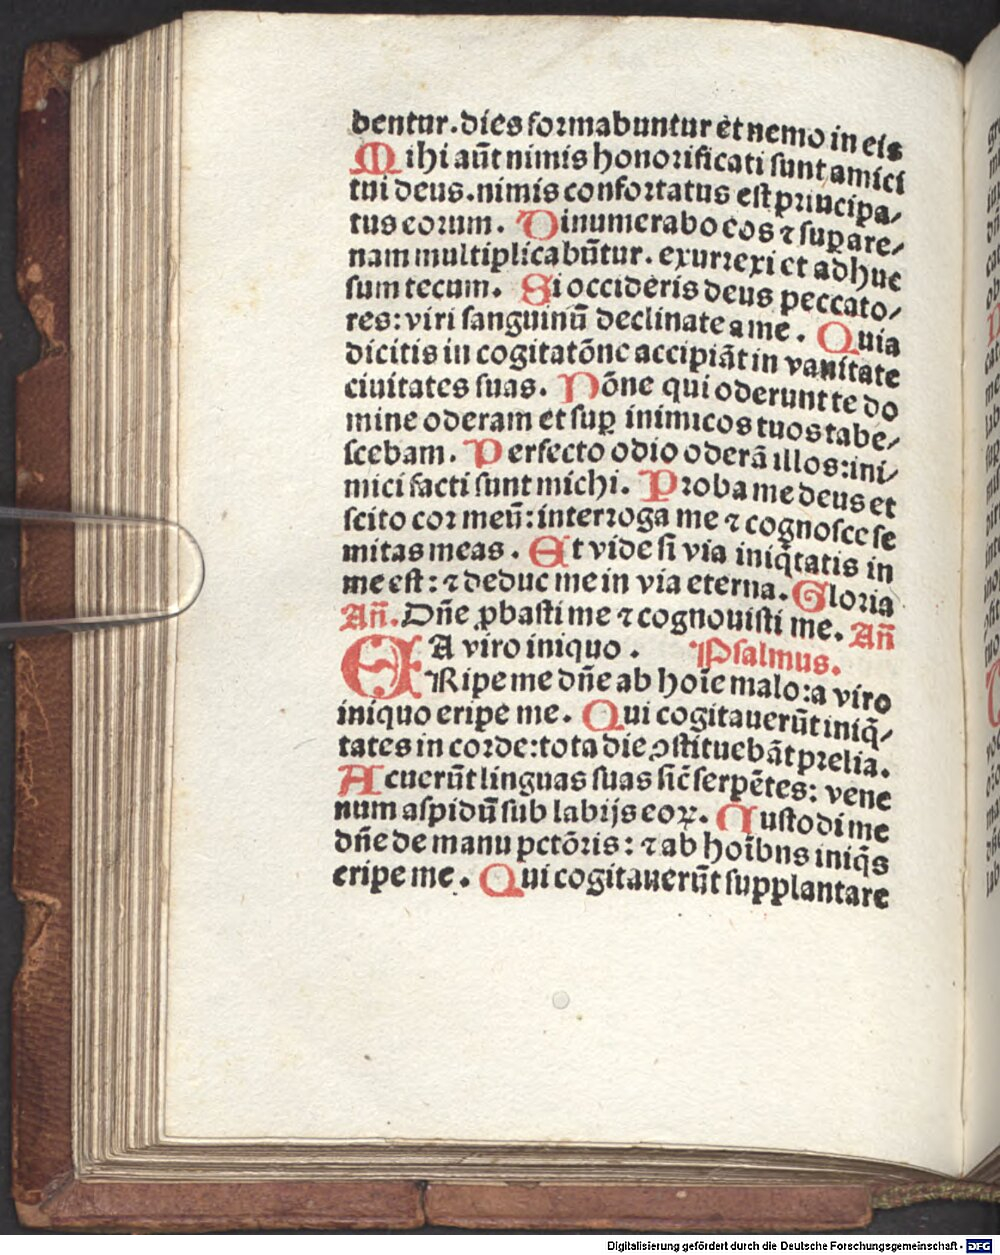 bentur.dies formabuntur et nemo in eis
Mihi aūt nimis honorificati sunt amici
tui deus.nimis confortatus est principa/
tus eorum. Dinumerabo eos ⁊ suꝑ are/
nam multiplicabūtur. exurrexi et adhuc
sum tecum. Si occideris deus peccato/
res:viri sanguinū declinate a me. Quia
dicitis in cogitatōne accipiāt in vanitate
ciuitates suas. Nōne qui oderunt te do
mine oderam et suꝑ inimicos tuos tabe/
scebam. Perfecto odio oderā illos:ini/
mici facti sunt michi. Proba me deus et
scito cor meū:interroga me ⁊ cognosce se
mitas meas. Et vide si via iniq̄tatis in
me est: ⁊ deduc me in via eterna. Gloria
Añ. Dn̄e ꝓbasti me ⁊ cognouisti me. Añ
A viro iniquo. Psalmus.
ERipe me dn̄e ab hoīe malo:a viro
iniquo eripe me. Qui cogitauerūt iniq̄/
tates in corde:tota die ꝯstituebāt prelia.
Acuerūt linguas suas sic̄ serpētes: vene
num aspidū sub labijs eoꝝ. Custodi me
dn̄e de manu pctōris: ⁊ ab hoībus iniq̄s
eripe me. Qui cogitauerūt supplantare
Digitalisierung gefördert durch die Deutsche Forschungsgemeinschaft - DFG